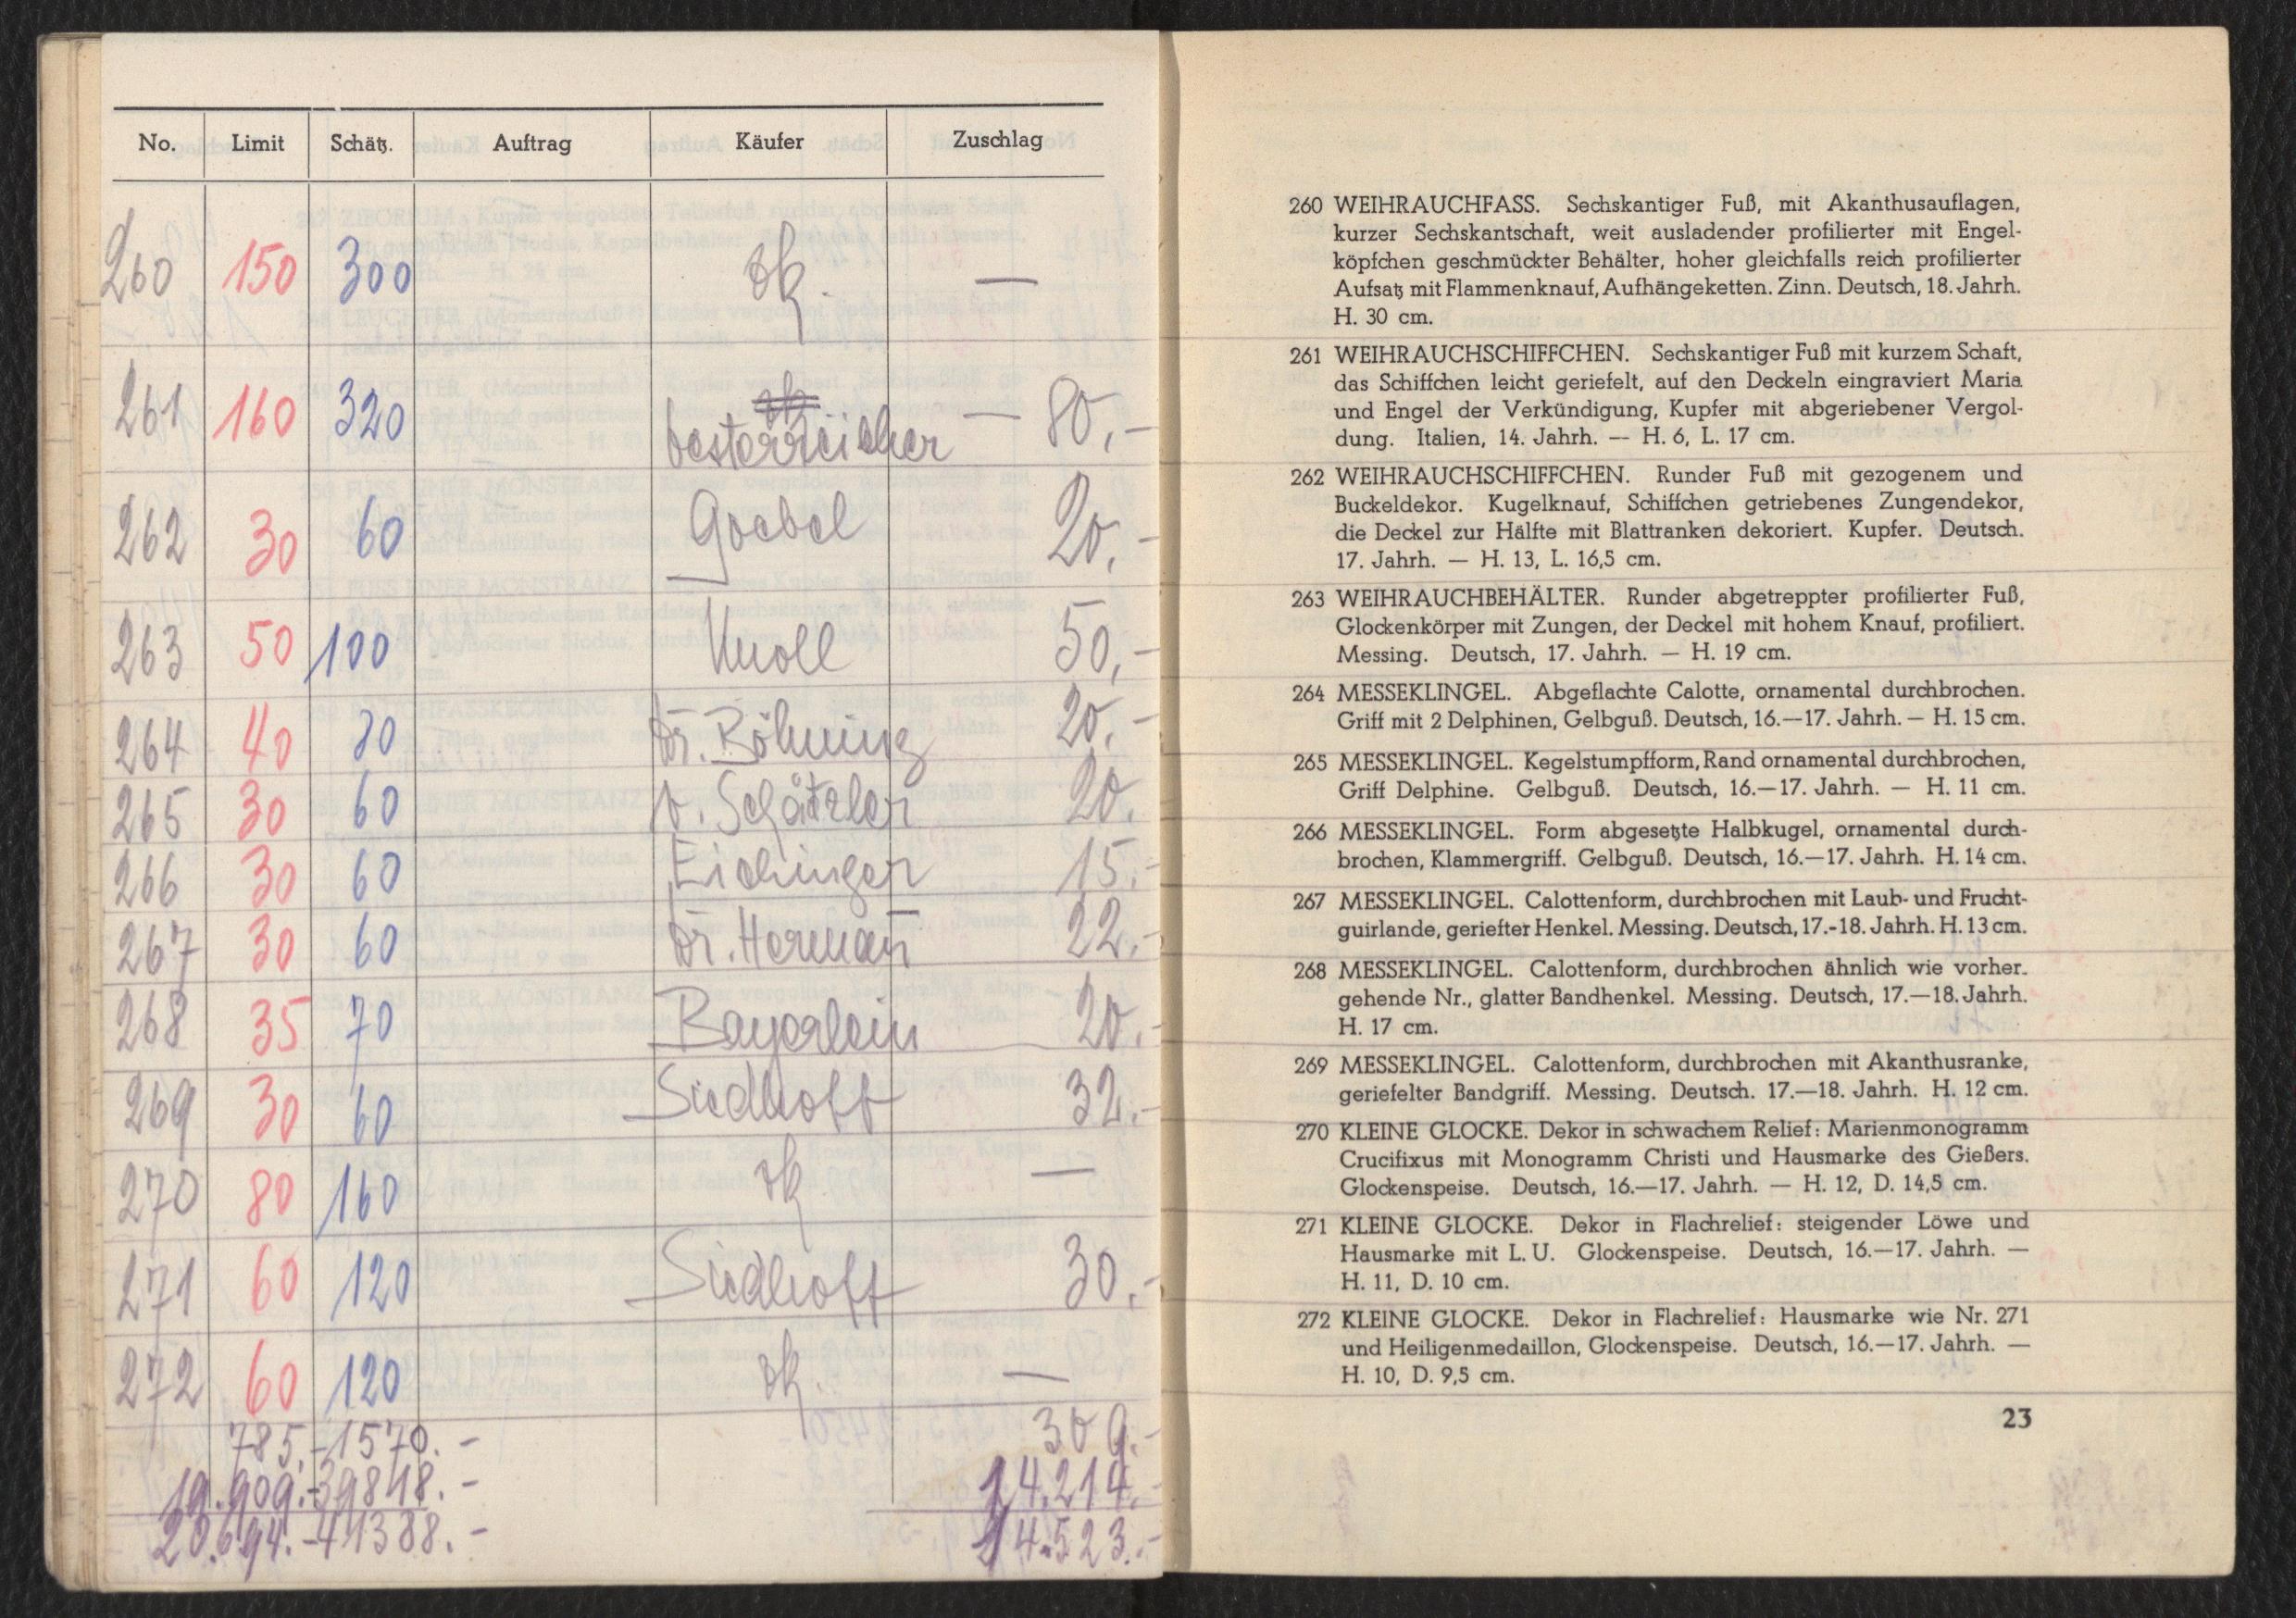 No. Limit Schätz. Auftrag Käufer Zuschlag
260 150 300 —
261 160 320 oesterreicher — 80,-
262 30 60 Goebel 20.-
263 50 100 Knoll 50,-
264 40 80 Dr. Böhming 20.-
265 30 60 v. Schätzler 20.
266 30 60 Eichinger 15.-
267 30 60 Dr. Hermañ 22.-
268 35 70 Bayerlein 20.-
269 30 60 Siedhoff 32.-
270 80 160 —
271 60 120 Siedhoff 30.-
272 60 120 —
785.- 1570.- 309.-
19.909.- 39818.- 14.214.-
20.694.- 41388.- 14.523.-
260 WEIHRAUCHFASS. Sechskantiger Fuß, mit Akanthusauflagen,
kurzer Sechskantschaft, weit ausladender profilierter mit Engel-
köpfchen geschmückter Behälter, hoher gleichfalls reich profilierter
Aufsatz mit Flammenknauf, Aufhängeketten. Zinn. Deutsch, 18. Jahrh.
H. 30 cm.
261 WEIHRAUCHSCHIFFCHEN. Sechskantiger Fuß mit kurzem Schaft,
das Schiffchen leicht geriefelt, auf den Deckeln eingraviert Maria
und Engel der Verkündigung, Kupfer mit abgeriebener Vergol-
dung. Italien, 14. Jahrh. — H. 6, L. 17 cm.
262 WEIHRAUCHSCHIFFCHEN. Runder Fuß mit gezogenem und
Buckeldekor. Kugelknauf, Schiffchen getriebenes Zungendekor,
die Deckel zur Hälfte mit Blattranken dekoriert. Kupfer. Deutsch.
17. Jahrh. — H. 13, L. 16,5 cm.
263 WEIHRAUCHBEHÄLTER. Runder abgetreppter profilierter Fuß,
Glockenkörper mit Zungen, der Deckel mit hohem Knauf, profiliert.
Messing. Deutsch, 17. Jahrh. — H. 19 cm.
264 MESSEKLINGEL. Abgeflachte Calotte, ornamental durchbrochen.
Griff mit 2 Delphinen, Gelbguß. Deutsch, 16.—17. Jahrh. — H. 15 cm.
265 MESSEKLINGEL. Kegelstumpfform, Rand ornamental durchbrochen,
Griff Delphine. Gelbguß. Deutsch, 16.—17. Jahrh. — H. 11 cm.
266 MESSEKLINGEL. Form abgesetzte Halbkugel, ornamental durch-
brochen, Klammergriff. Gelbguß. Deutsch, 16.—17. Jahrh. H. 14 cm.
267 MESSEKLINGEL. Calottenform, durchbrochen mit Laub- und Frucht-
guirlande, geriefter Henkel. Messing. Deutsch, 17.-18. Jahrh. H. 13 cm.
268 MESSEKLINGEL. Calottenform, durchbrochen ähnlich wie vorher-
gehende Nr., glatter Bandhenkel. Messing. Deutsch, 17.—18. Jahrh.
H. 17 cm.
269 MESSEKLINGEL. Calottenform, durchbrochen mit Akanthusranke,
geriefelter Bandgriff. Messing. Deutsch. 17.—18. Jahrh. H. 12 cm.
270 KLEINE GLOCKE. Dekor in schwachem Relief: Marienmonogramm
Crucifixus mit Monogramm Christi und Hausmarke des Gießers.
Glockenspeise. Deutsch, 16.—17. Jahrh. — H. 12, D. 14,5 cm.
271 KLEINE GLOCKE. Dekor in Flachrelief: steigender Löwe und
Hausmarke mit L. U. Glockenspeise. Deutsch, 16.—17. Jahrh. —
H. 11, D. 10 cm.
272 KLEINE GLOCKE. Dekor in Flachrelief: Hausmarke wie Nr. 271
und Heiligenmedaillon, Glockenspeise. Deutsch, 16.—17. Jahrh. —
H. 10, D. 9,5 cm.
23